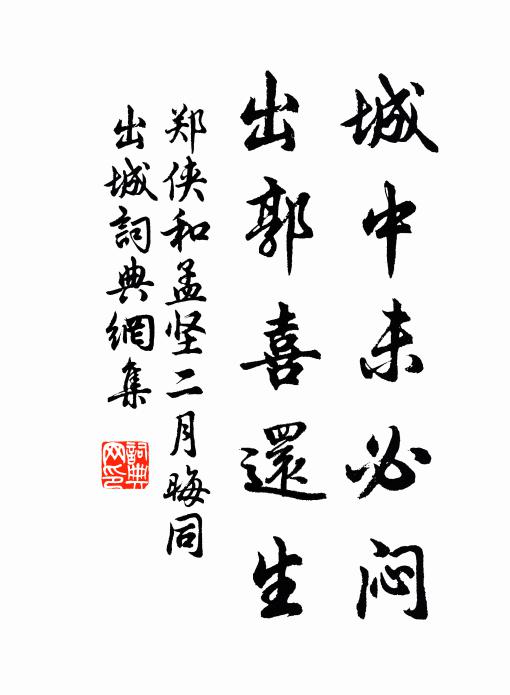 城中未必闷
出郭喜還生
郑侠和孟坚二月晦同
出城詞典網集
詞典
网印